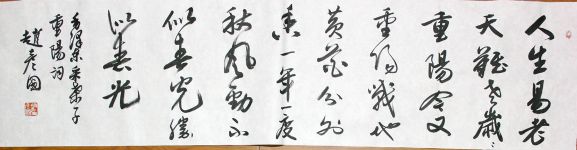 人生易老
天難老歲々
重陽今又
重陽戰地
黄花分外
香一年一度
秋风勁不
似春光勝
似春光
毛澤東采桑子
重陽詞
趙彦国